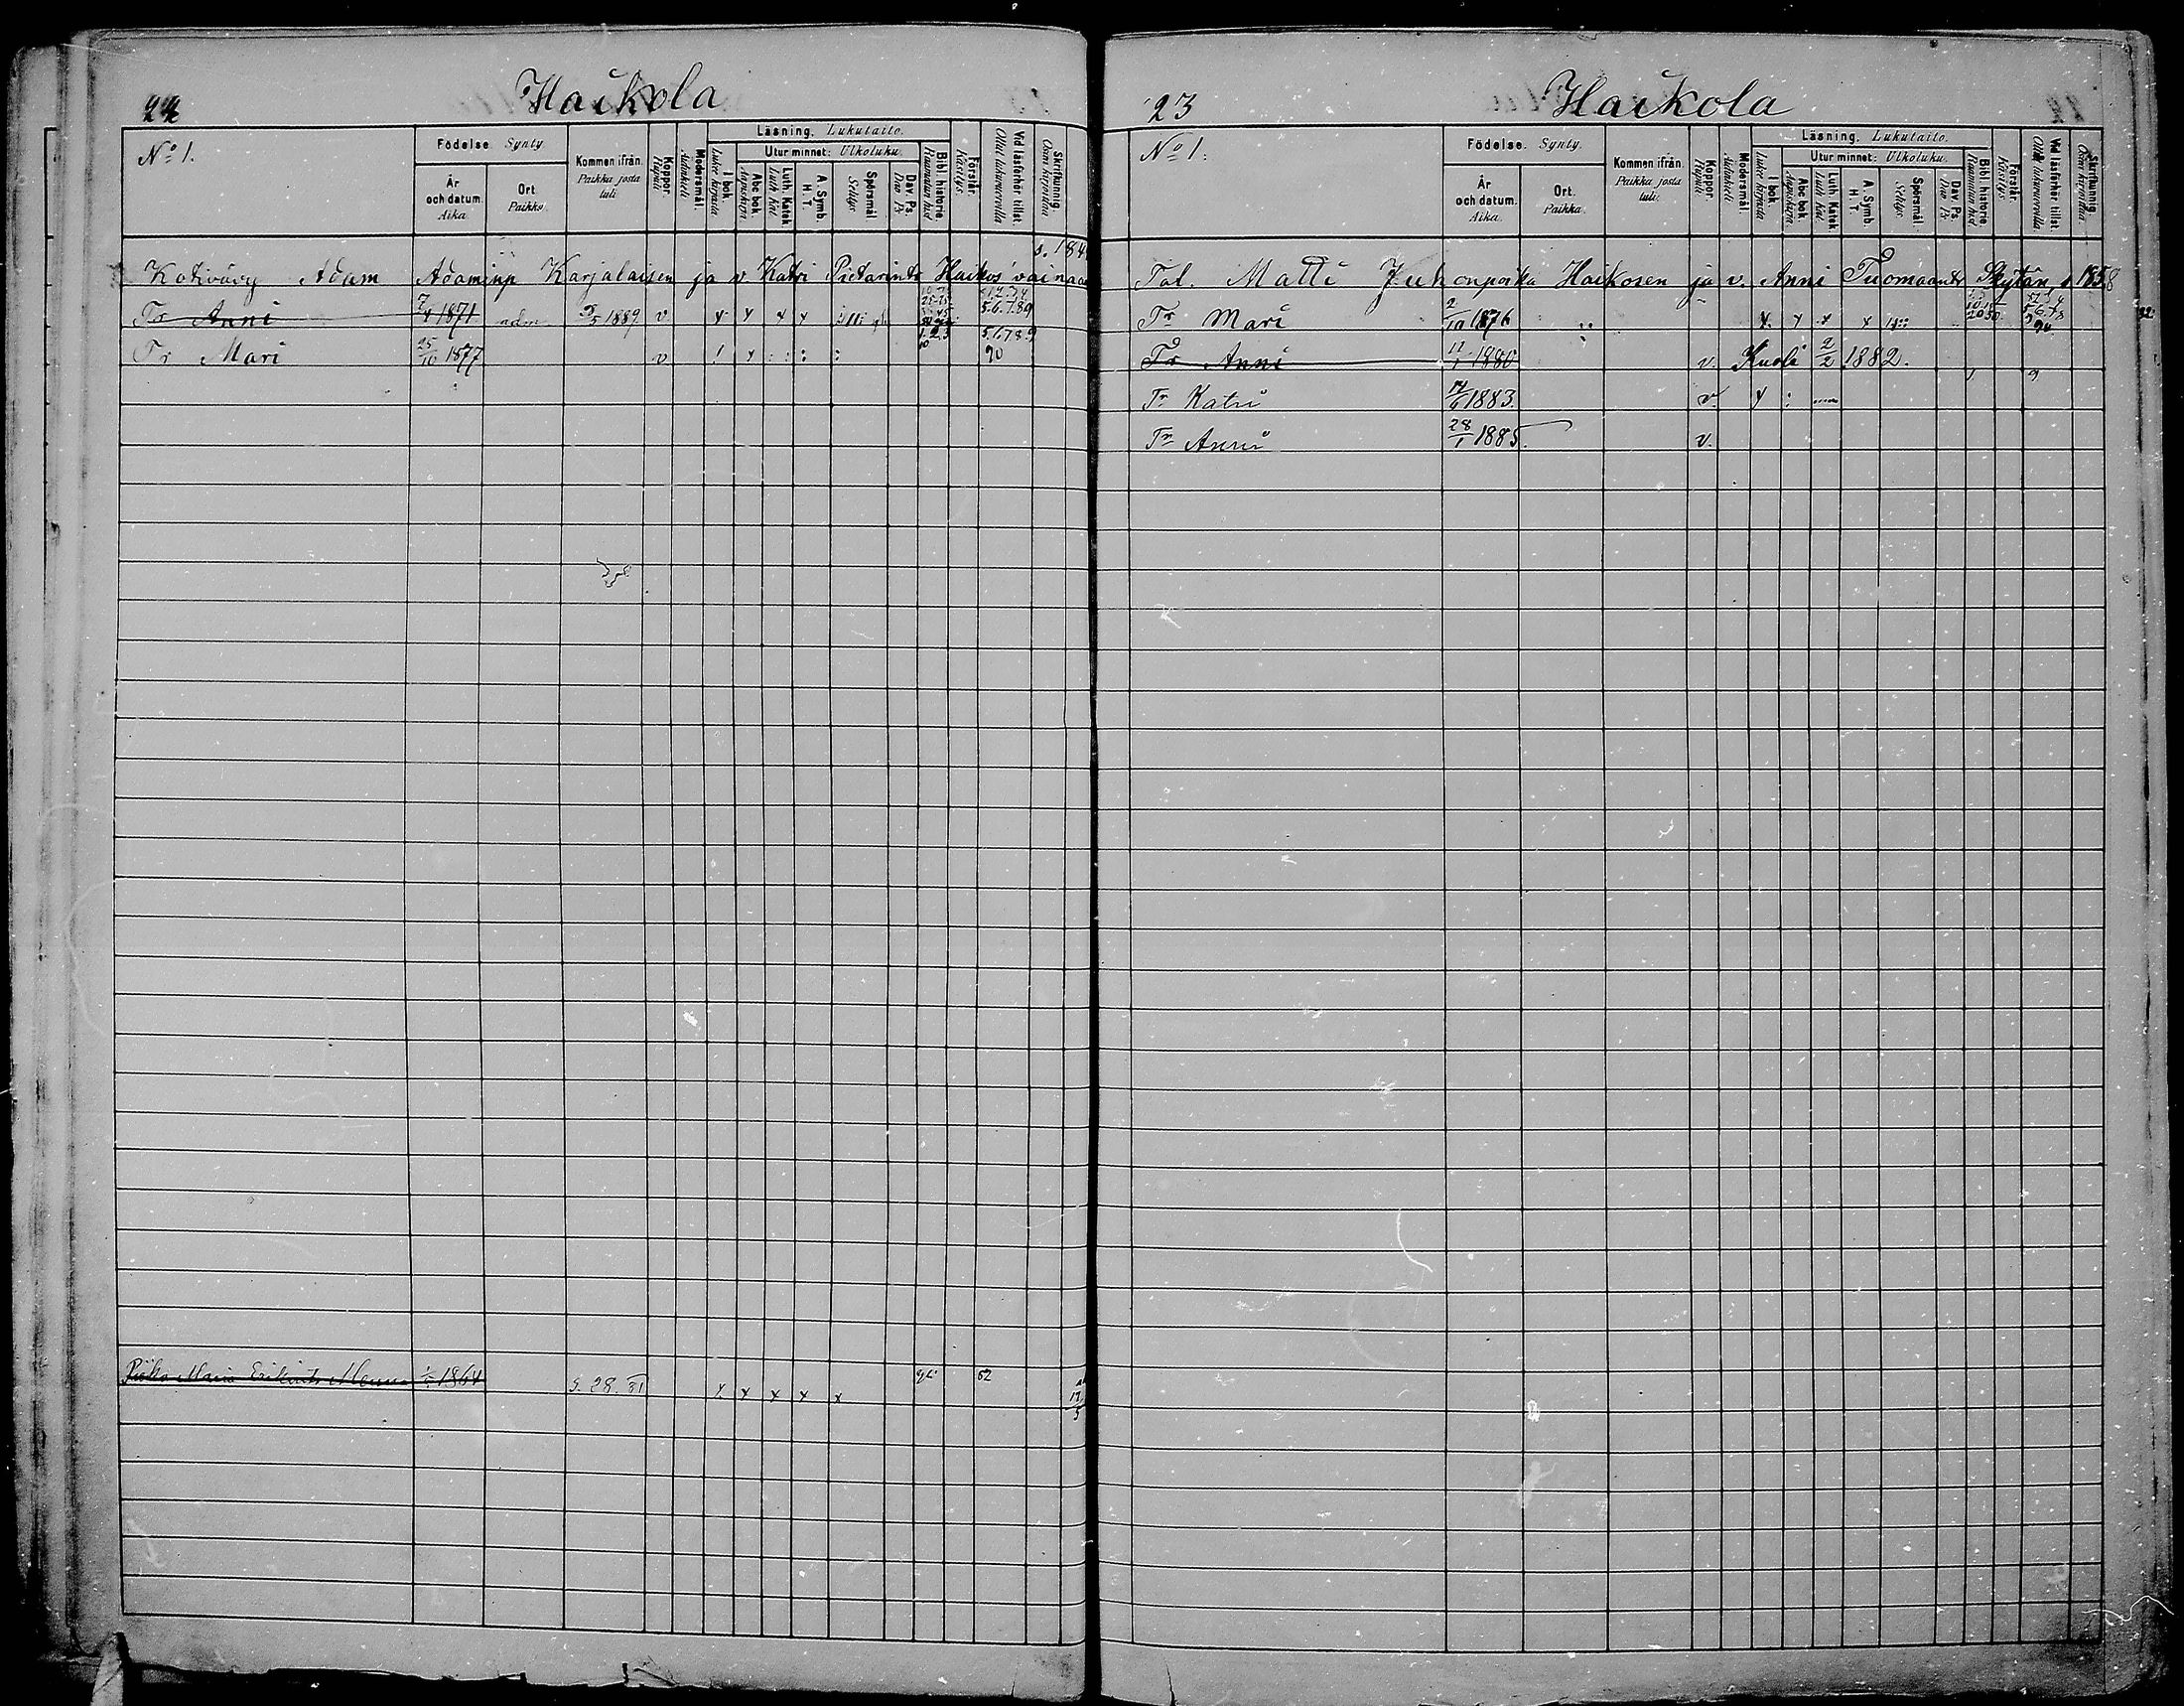 22
Haikola
No 1.
Födelse. Synty.
År och datum. Aika.
Ort Paikka.
Kommen ifrån. Paikka josta tuli.
Koppor. Rupuli
Modersmål. Äidinkieli
Läsning. Lukutaito.
I bok. Lukee kirjasta
Utur minnet: Ulkoluku.
Abc bok. Aapiskirja
Luth. Katek. Luth Kat
A. Symb. H. T.
Spörsmål Selitys
Dav. Ps. Daw Ps
Bibl. historie. Raamatun hist
Förstår. Käsitys.
Vid läsförhör tillst. Ollut lukuvuorolla
Skrifkunnig. Osaa kirjoittaa
s. 184
Kotivävy Adam Adaminp Karjalaisen ja v. Katri Pietarintr Haikos' vainaan
Tr Anni 7/4 1871 adm 5/5 1889. v x x x x 5.6.7.89
Tr Mari 25/10 1877 v ! x : : : : 1.2.3 10 5.6.7.8.9 90
Piika Maria Erikintr 1864 S. 28. 81 x x x x x 82 17/5
23
Haikola
No 1:
Födelse. Synty.
År och datum. Aika.
Ort. Paikka.
Kommen ifrån. Paikka josta tuli.
Koppor. Rupuli
Modersmål. Äidinkieli
Läsning. Lukutaito.
I bok. Lukee kirjasta
Utur minnet: Ulkoluku.
Abc bok. Aapiskirja.
Luth. Katek. Luth Kat
A. Symb. H. T.
Spörsmål. Selitys.
Dav. Ps. Daw Ps
Bibl. historie. Raamatun hist
Förstår. Käsitys
Vid läsförhör tillst. Ollut lukuvuorolla.
Skrifkunnig. Osaa kirjoittaa.
Tal. Matti Juhonpoika Haikosen ja v. Anni Tuomaantr Skytän s 1858
Tr Mari 2/10 1876 x x x x 90
Tr Anni 1880 v. Kuoli 2/2 1882.
Tr Katri 14/6 1883. v. x : 9
Tr Anni 28/1 1885. v.